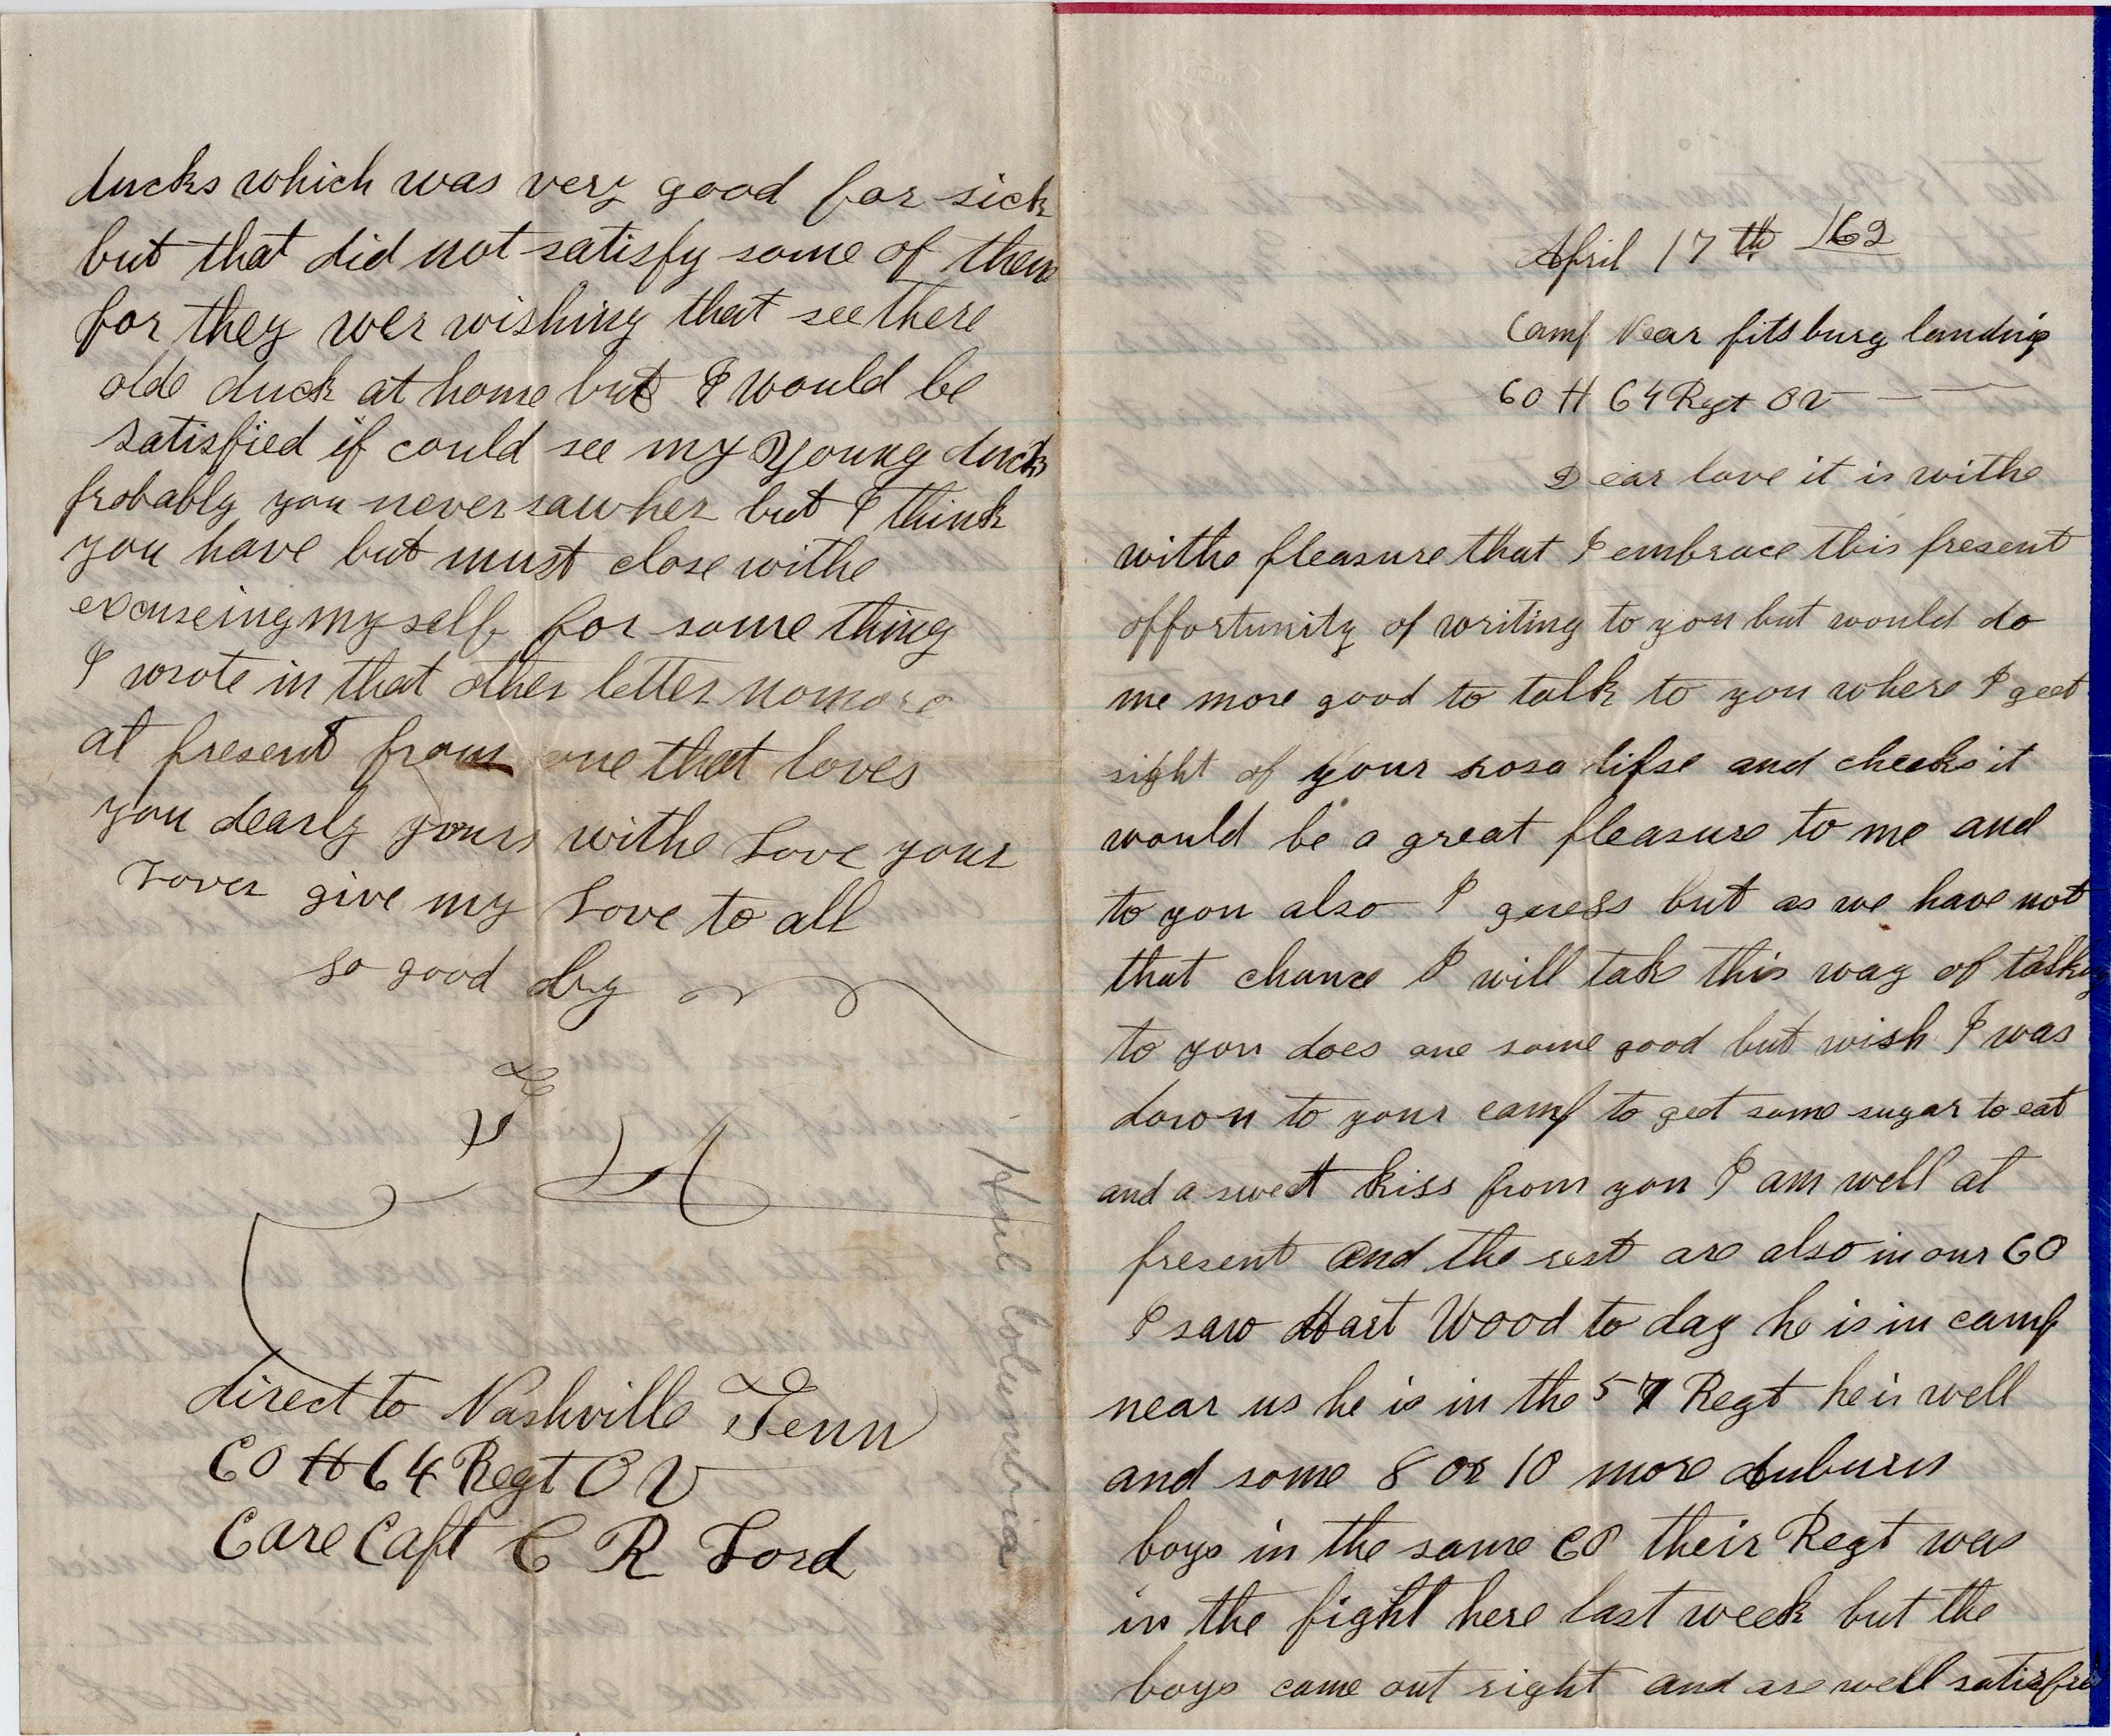 April 17th /62
Camp Near pitsburg landing
CO H 64 Regt O V
Dear love it is withe
withe pleasure that I embrace this present
opportunity of writing to you but would do
me more good to talk to you where I geet
sight of your rosa lipse and cheeks it
would be a great pleasure to me and
to you also I guess but as we have not
that chance I will take this way of talking
to you does one some good but wish I was
down to your camp to geet some sugar to eat
and a sweet kiss from you I am well at
present and the rest are also in our CO
I saw Hart Wood to day he is in camp
near us he is in the 57 Regt he is well
and some 8 or 10 more auburn
boys in the same CO their Regt was
in the fight here last week but the
boys came out right and are well satisfied
ducks which was very good for sick
but that did not satisfy some of them
for they wer wishing that see there
olde duck at home but I would be
satisfied if could see my young duck
probably you never saw her but I think
you have but must close withe
excuseing my self for some thing
I wrote in that other letter no more
at present from one that loves
you dearly yours withe Love your
Lover give my Love to all
so good by
direct to Nashville Tenn
CO H 64 Regt O V
Care Capt C R Lord
Hail Columbia